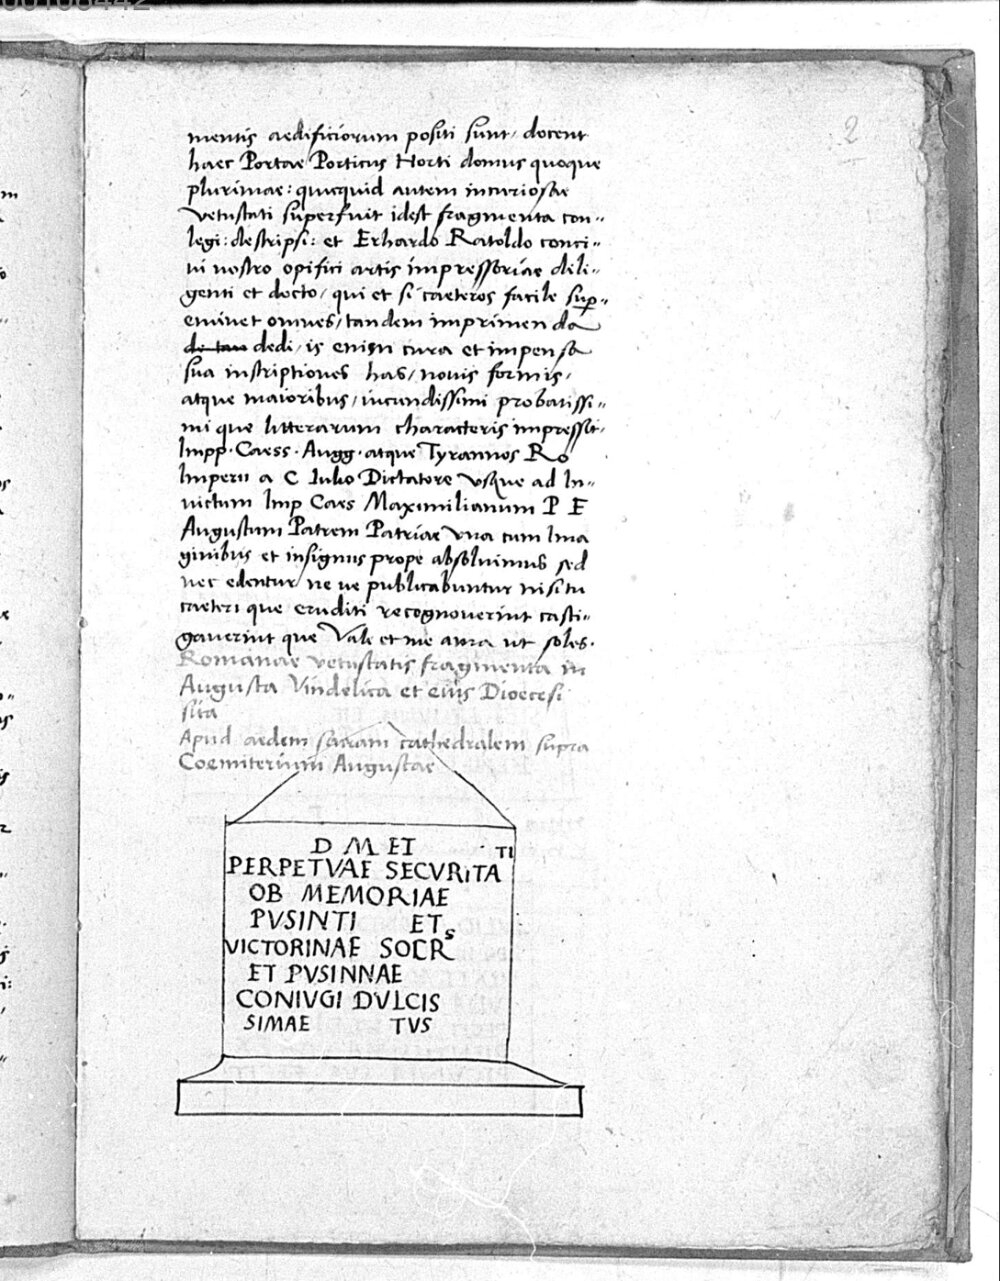 00108442
2
mentis aedificiorum positi sunt, docent
haec Portae Porticus Horti domus quoque
plurimae: quicquid autem incuriosae
vetustati superfuit idest fragmenta con„
legi: descripsi: et Erhardo Ratoldo conci„
vi nostro opifici artis impressoriae dili„
genti et docto, qui et si caeteros facile sup„
eminet omnes, tandem imprimenda
de tan dedi, is enim cura et impensa
sua inscriptiones has, novis formis,
atque maioribus, iucundissimi probatissi„
mi que litterarum characteris impressit,
Impp. Caess. Augg. atque Tyrannos Ro
Imperii a C Iulio Dictatore usque ad In„
victum Imp Caes Maximilianum P F
Augustum Patrem Patriae una cum Ima
ginibus et insigniis prope absolvimus sed
nec edentur ne ve publicabuntur nisi tu
caeteri que eruditi recognoverint casti„
gaverint que Vale et me ama ut soles.
Romanae vetustatis fragmenta in
Augusta Vindelica et eius Dioecesi
sita
Apud aedem sacram cathedralem supra
Coemiterium Augustae
D M ET
PERPETVAE SECVRITA TI
OB MEMORIAE
PVSINTI ET
VICTORINAE SOCR S
ET PVSINNAE
CONIVGI DVLCIS
SIMAE TVS